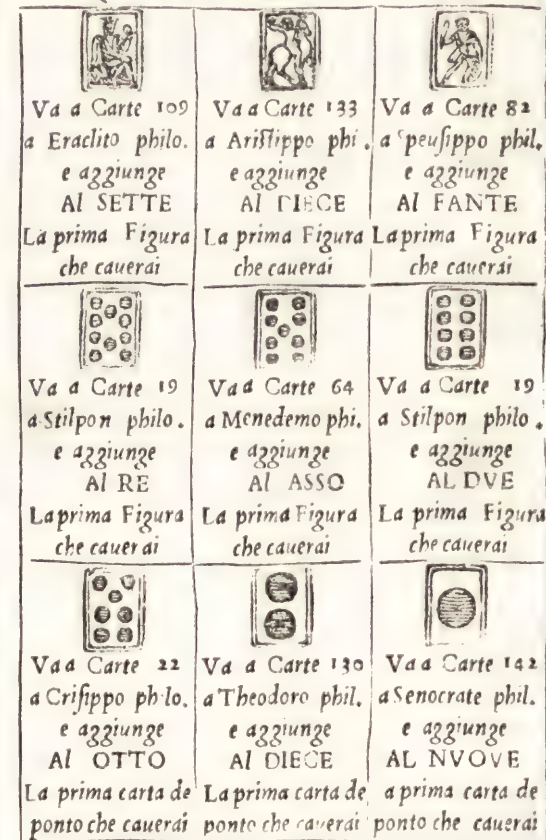 Va a Carte 109
a Eraclito philo.
e aggiunge
Al SETTE
La prima Figura
che cauerai
Va a Carte 133
a Aristippo phi.
e aggiunge
Al DIECE
La prima Figura
che cauerai
Va a Carte 82
a peusippo phil.
e aggiunge
Al FANTE
La prima Figura
che cauerai
Va a Carte 19
a Stilpon philo.
e aggiunge
Al RE
La prima Figura
che cauerai
Va a Carte 64
a Menedemo phi.
e aggiunge
Al ASSO
La prima Figura
che cauerai
Va a Carte 19
a Stilpon philo.
e aggiunge
AL DVE
La prima Figura
che cauerai
Va a Carte 22
a Crisippo philo.
e aggiunge
Al OTTO
La prima carta de
ponto che cauerai
Va a Carte 130
a Theodoro phil.
e aggiunge
Al DIECE
La prima carta de
ponto che cauerai
Va a Carte 142
a Senocrate phil.
e aggiunge
AL NVOVE
a prima carta de
ponto che cauerai